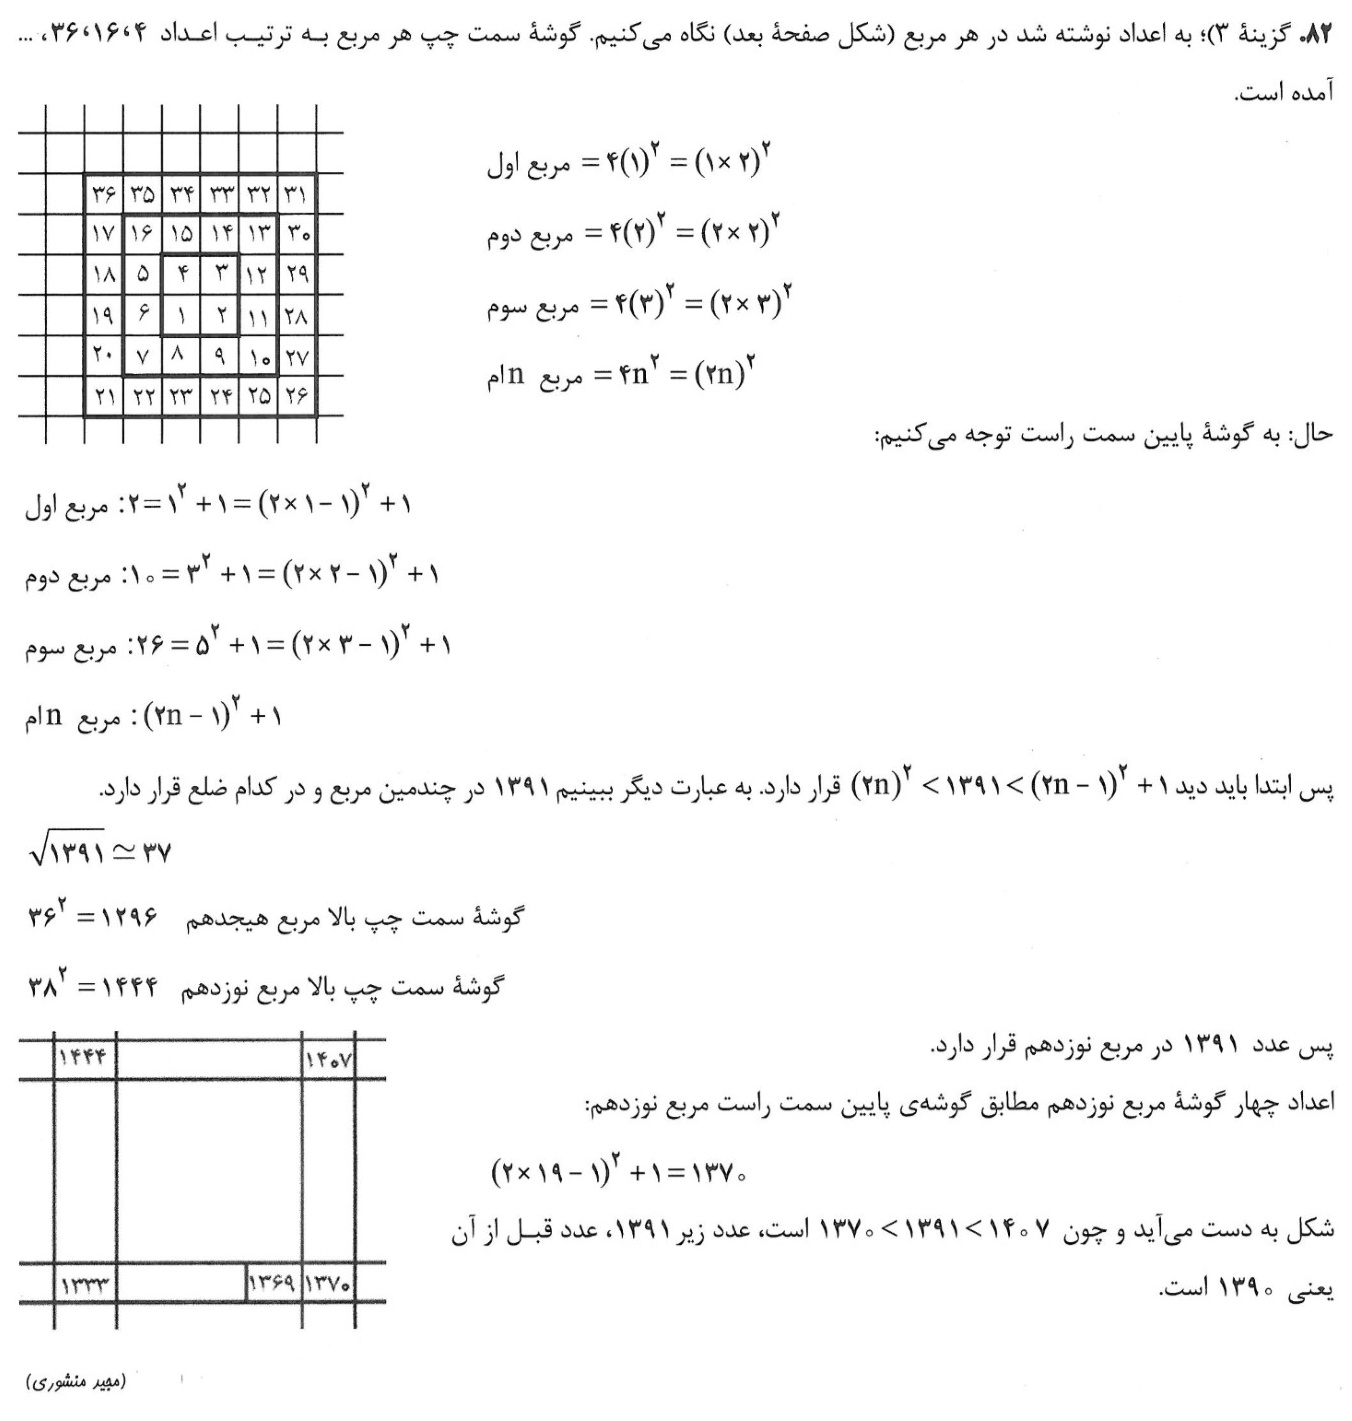 ۸۲. گزینهٔ ۳)؛ به اعداد نوشته شد در هر مربع (شکل صفحهٔ بعد) نگاه می‌کنیم. گوشهٔ سمت چپ هر مربع به ترتیب اعداد ۴، ۱۶، ۳۶، ...
آمده است.
مربع اول = ۴(۱)^۲ = (۱×۲)^۲
مربع دوم = ۴(۲)^۲ = (۲×۲)^۲
مربع سوم = ۴(۳)^۲ = (۲×۳)^۲
مربع nام = ۴n^۲ = (۲n)^۲
۳۶ ۳۵ ۳۴ ۳۳ ۳۲ ۳۱
۱۷ ۱۶ ۱۵ ۱۴ ۱۳ ۳۰
۱۸ ۵ ۴ ۳ ۱۲ ۲۹
۱۹ ۶ ۱ ۲ ۱۱ ۲۸
۲۰ ۷ ۸ ۹ ۱۰ ۲۷
۲۱ ۲۲ ۲۳ ۲۴ ۲۵ ۲۶
حال: به گوشهٔ پایین سمت راست توجه می‌کنیم:
مربع اول :۲=۱^۲+۱=(۲×۱−۱)^۲+۱
مربع دوم :۱۰=۳^۲+۱=(۲×۲−۱)^۲+۱
مربع سوم :۲۶=۵^۲+۱=(۲×۳−۱)^۲+۱
مربع nام : (۲n−۱)^۲+۱
پس ابتدا باید دید (۲n)^۲ <۱۳۹۱< (۲n−۱)^۲+۱ قرار دارد. به عبارت دیگر ببینیم ۱۳۹۱ در چندمین مربع و در کدام ضلع قرار دارد.
√۱۳۹۱ ≃ ۳۷
۳۶^۲ = ۱۲۹۶ گوشهٔ سمت چپ بالا مربع هیجدهم
۳۸^۲ = ۱۴۴۴ گوشهٔ سمت چپ بالا مربع نوزدهم
پس عدد ۱۳۹۱ در مربع نوزدهم قرار دارد.
اعداد چهار گوشهٔ مربع نوزدهم مطابق گوشه‌ی پایین سمت راست مربع نوزدهم:
(۲×۱۹−۱)^۲+۱=۱۳۷۰
شکل به دست می‌آید و چون ۱۳۷۰<۱۳۹۱<۱۴۰۷ است، عدد زیر ۱۳۹۱، عدد قبل از آن
یعنی ۱۳۹۰ است.
۱۴۴۴ ۱۴۰۷
۱۳۳۳ ۱۳۶۹ ۱۳۷۰
(مجید منشوری)